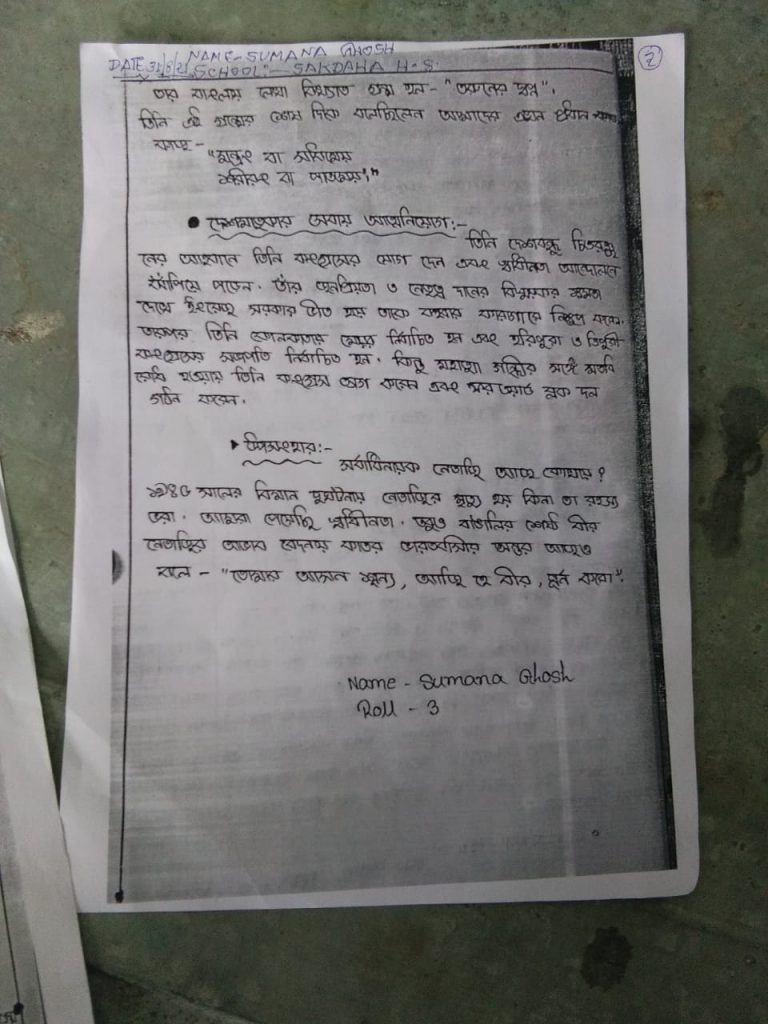 DATE 31/8/21 NAME-SUMANA GHOSH
SCHOOL:- SAKDAHA H.S.
2
তার বাংলায় লেখা বিখ্যাত গ্রন্থ হল - "তরুনের স্বপ্ন".
তিনি এই গ্রন্থের শেষ দিকে বলেছিলেন আমাদের এখন প্রধান
কাজ -
"মন্ত্রং বা সাধয়েয়ং
শরীরং বা পাতয়েয়ং"
● দেশমাতৃকার সেবায় আত্মনিয়োগ:-
তিনি দেশবন্ধু চিত্তরঞ্জ
নের আহ্বানে তিনি কংগ্রেসে যোগ দেন এবং স্বাধীনতা আন্দোলনে
ঝাঁপিয়ে পড়েন. তাঁর জনপ্রিয়তা ও নেতৃত্ব দানের বিস্ময়কর ক্ষমতা
দেখে ইংরেজ সরকার ভীত হয়ে তাকে বারবার কারাগারে নিক্ষেপ করেন.
তারপর তিনি কোলকাতার মেয়র নির্বাচিত হন এবং হরিপুরা ও ত্রিপুরী
কংগ্রেসের সভাপতি নির্বাচিত হন. কিন্তু মহাত্মা গান্ধীর সঙ্গে মতবি
রোধ হওয়ায় তিনি কংগ্রেস ত্যাগ করেন এবং ফরওয়ার্ড ব্লক দল
গঠন করেন.
▸ উপসংহার:-
সর্বাধিনায়ক নেতাজি আজ কোথায় ?
১৯৪৫ সালের বিমান দুর্ঘটনায় নেতাজির মৃত্যু হয় কিনা তা রহস্যে
ভরা. আমরা পেয়েছি স্বাধীনতা. তবুও বাঙালির শ্রেষ্ঠ বীর
নেতাজির অভাব বেদনায় কাতর ভারতবাসীর অন্তর আজও
বলে - "তোমার আসন শূন্য, আজি হে বীর, পূর্ন করো".
Name - Sumana Ghosh
Roll - 3